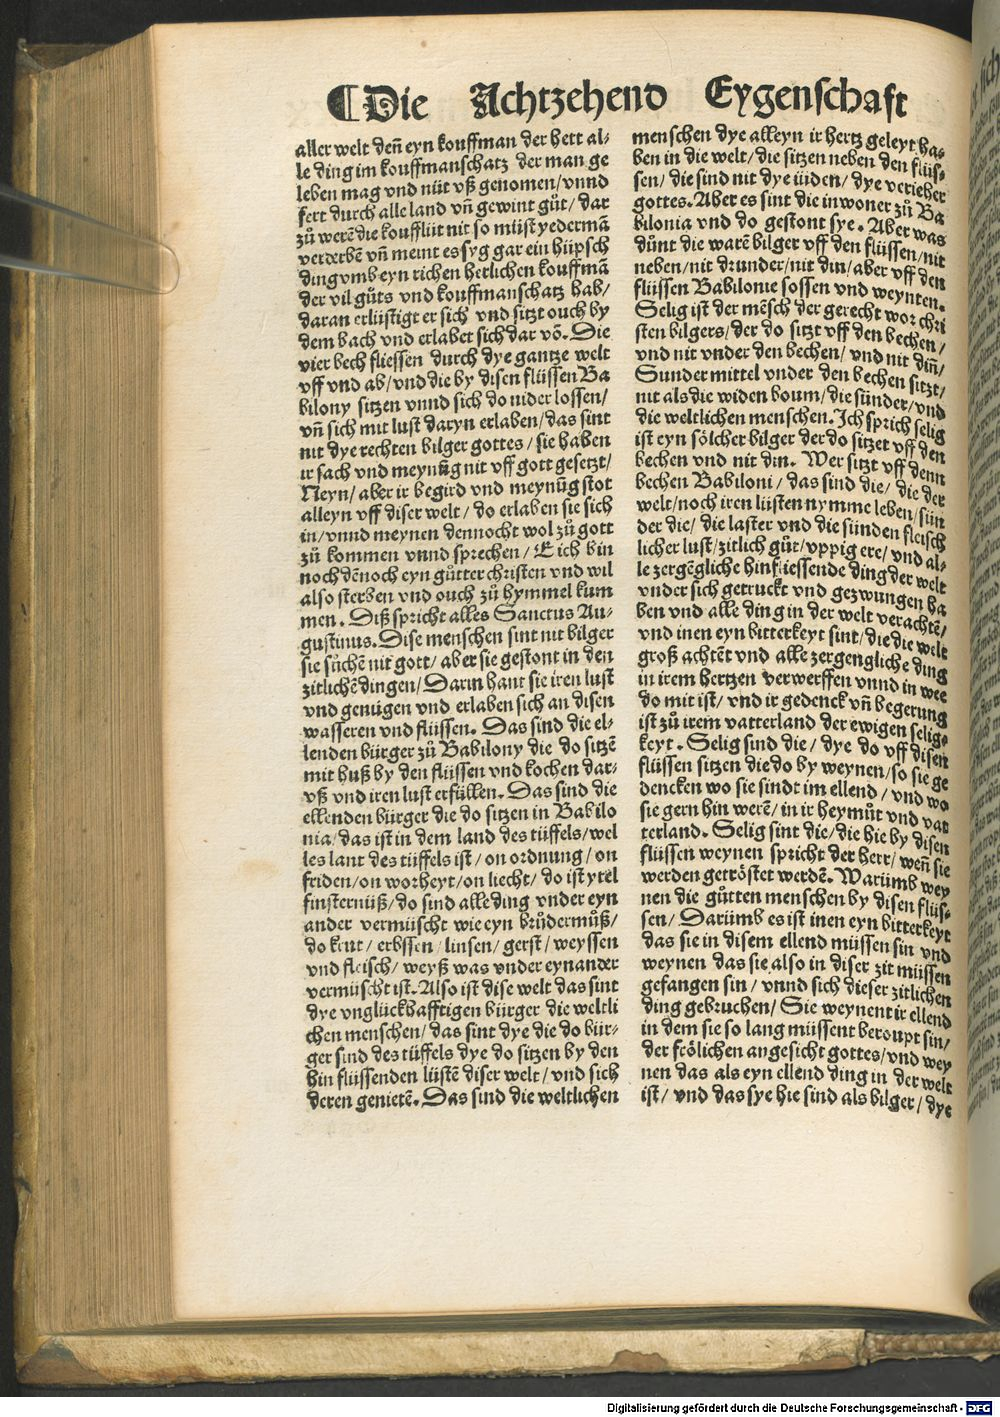 ¶Die Achtzehend Eygenschaft
aller welt deñ eyn kouffman der hett al-
le ding im kouffmanschatz der man ge
leben mag vnd nüt vß genomen/vnnd
fert durch alle land vñ gewint gůt/ dar
zů werẽ die koufflüt nit so müst yedermã
verderbẽ vñ meint es syg gar ein hüpsch
ding vmb eyn richen herlichen kouffmã
der vil gůts vnd kouffmanschatz hab/
daran erlüstigt er sich vnd sitzt ouch by
dem bach vnd erlabet sich dar võ. Die
vier bech fliessen durch dye gantze welt
vff vnd ab/vnd die by disen flüssen Ba
bilony sitzen vnnd sich do nider lossen/
vñ sich mit lust daryn erlaben/das sint
nit dye rechten bilger gottes/ sie haben
ir sach vnd meynũg nit vff gott gesetzt/
Neyn/aber ir begird vnd meynũg stot
alleyn vff diser welt/ do erlaben sie sich
in/vnnd meynen dennocht wol zů gott
zů kommen vnnd sprechen/ E ich bin
noch dẽnoch eyn gůtter christen vnd wil
also sterben vnd ouch zů hymmel kum
men. Diß spricht alles Sanctus Au-
gustinus. Dise menschen sint nit bilger
sie sůchẽ nit gott/ aber sie gestont in den
zitlichẽ dingen/ Darin hant sie iren lust
vnd genügen vnd erlaben sich an disen
wasseren vnd flüssen. Das sind die el-
lenden bürger zů Babilony die do sitzẽ
mit huß by den flüssen vnd kochen dar-
vß vnd iren lust erfüllen. Das sind die
ellenden bürger die do sitzen in Babilo
nia/das ist in dem land des tüffels/wel
les lant des tüffels ist/on ordnung/on
friden/on worheyt/on liecht/ do ist ytel
finsternüß/do sind alle ding vnder eyn
ander vermüscht wie eyn brůdermůß/
do krut/ erbssen/ linsen/ gerst/ weyssen
vnd fleisch/ weyß was vnder eynander
vermüscht ist. Also ist dise welt das sint
dye vnglückhafftigen bürger die weltli
chen menschen/ das sint dye die do bür-
ger sind des tüffels dye do sitzen by den
hin flüssenden lüstẽ diser welt/ vnd sich
deren genietẽ. Das sind die weltlichen
menschen dye alleyn ir hertz geleyt ha-
ben in die welt/die sitzen neben den flüs-
sen/ die sind nit dye iüden/ dye verieher
gottes. Aber es sint die inwoner zů Ba
bilonia vnd do gestont sye. Aber was
důnt die warẽ bilger vff den flüssen/nit
neben/nit drunder/nit din/aber vff den
flüssen Babilonie sossen vnd weynten.
Selig ist der mẽsch der gerecht wor chri
sten bilgers/der do sitzt vff den bechen/
vnd nit vnder den bechen/ vnd nit diñ/
Sunder mittel vnder den bechen sitzt/
nit als die widen boum/die sünder/vnd
die weltlichen menschen. Ich sprich selig
ist eyn sölcher bilger der do sitzet vff den
bechen vnd nit din. Wer sitzt vff denn
bechen Babiloni/ das sind die/ die der
welt/noch iren lüsten nymme leben/sün
der die/ die laster vnd die sünden fleisch
licher lust/zitlich gůt/vppig ere/vnd al-
le zergẽgliche hinfliessende ding der welt
vnder sich getruckt vnd gezwungen ha
ben vnd alle ding in der welt verachtẽ/
vnd inen eyn bitterkeyt sint/die die welt
groß achtẽt vnd alle zergengliche ding
in irem hertzen verwerffen vnnd in wee
do mit ist/ vnd ir gedenck vñ begerung
ist zů irem vatterland der ewigen selig-
keyt. Selig sind die/ dye do vff disen
flüssen sitzen die do by weynen/so sie ge
dencken wo sie sindt im ellend/ vnd wo
sie gern hin werẽ/ in ir heymůt vnd vat
terland. Selig sint die/die hie by disen
flüssen weynen spricht der herr/ weñ sie
werden getröstet werdẽ. Warümb wey
nen die gůtten menschen by disen flüs-
sen/ Darümb es ist inen eyn bitterkeyt
das sie in disem ellend müssen sin vnd
weynen das sie also in diser zit müssen
gefangen sin/ vnnd sich dieser zitlichen
ding gebruchen/ Sie weynent ir ellend
in dem sie so lang müssent beroupt sin/
der frölichen angesicht gottes/vnd wey
nen das als eyn ellend ding in der welt
ist/ vnd das sye hie sind als bilger/ dye
Digitalisierung gefördert durch die Deutsche Forschungsgemeinschaft - DFG